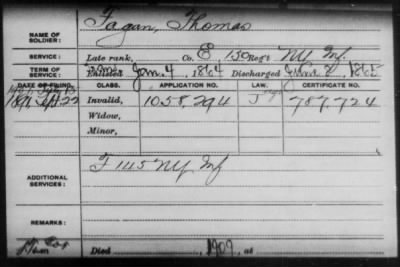 Fagan, Thomas
NAME OF
SOLDIER:
SERVICE: Late rank, Co. E, 150 Reg't NY Inf.
TERM OF
SERVICE: Enlisted Jan. 4, 1864 Discharged 1865
DATE OF FILING. CLASS. APPLICATION NO. LAW. CERTIFICATE NO.
1891 Sept 22 Invalid, 1058,294 787,724
Widow,
Minor,
ADDITIONAL
SERVICES: F 145 NY Inf
REMARKS:
Died 1909, at